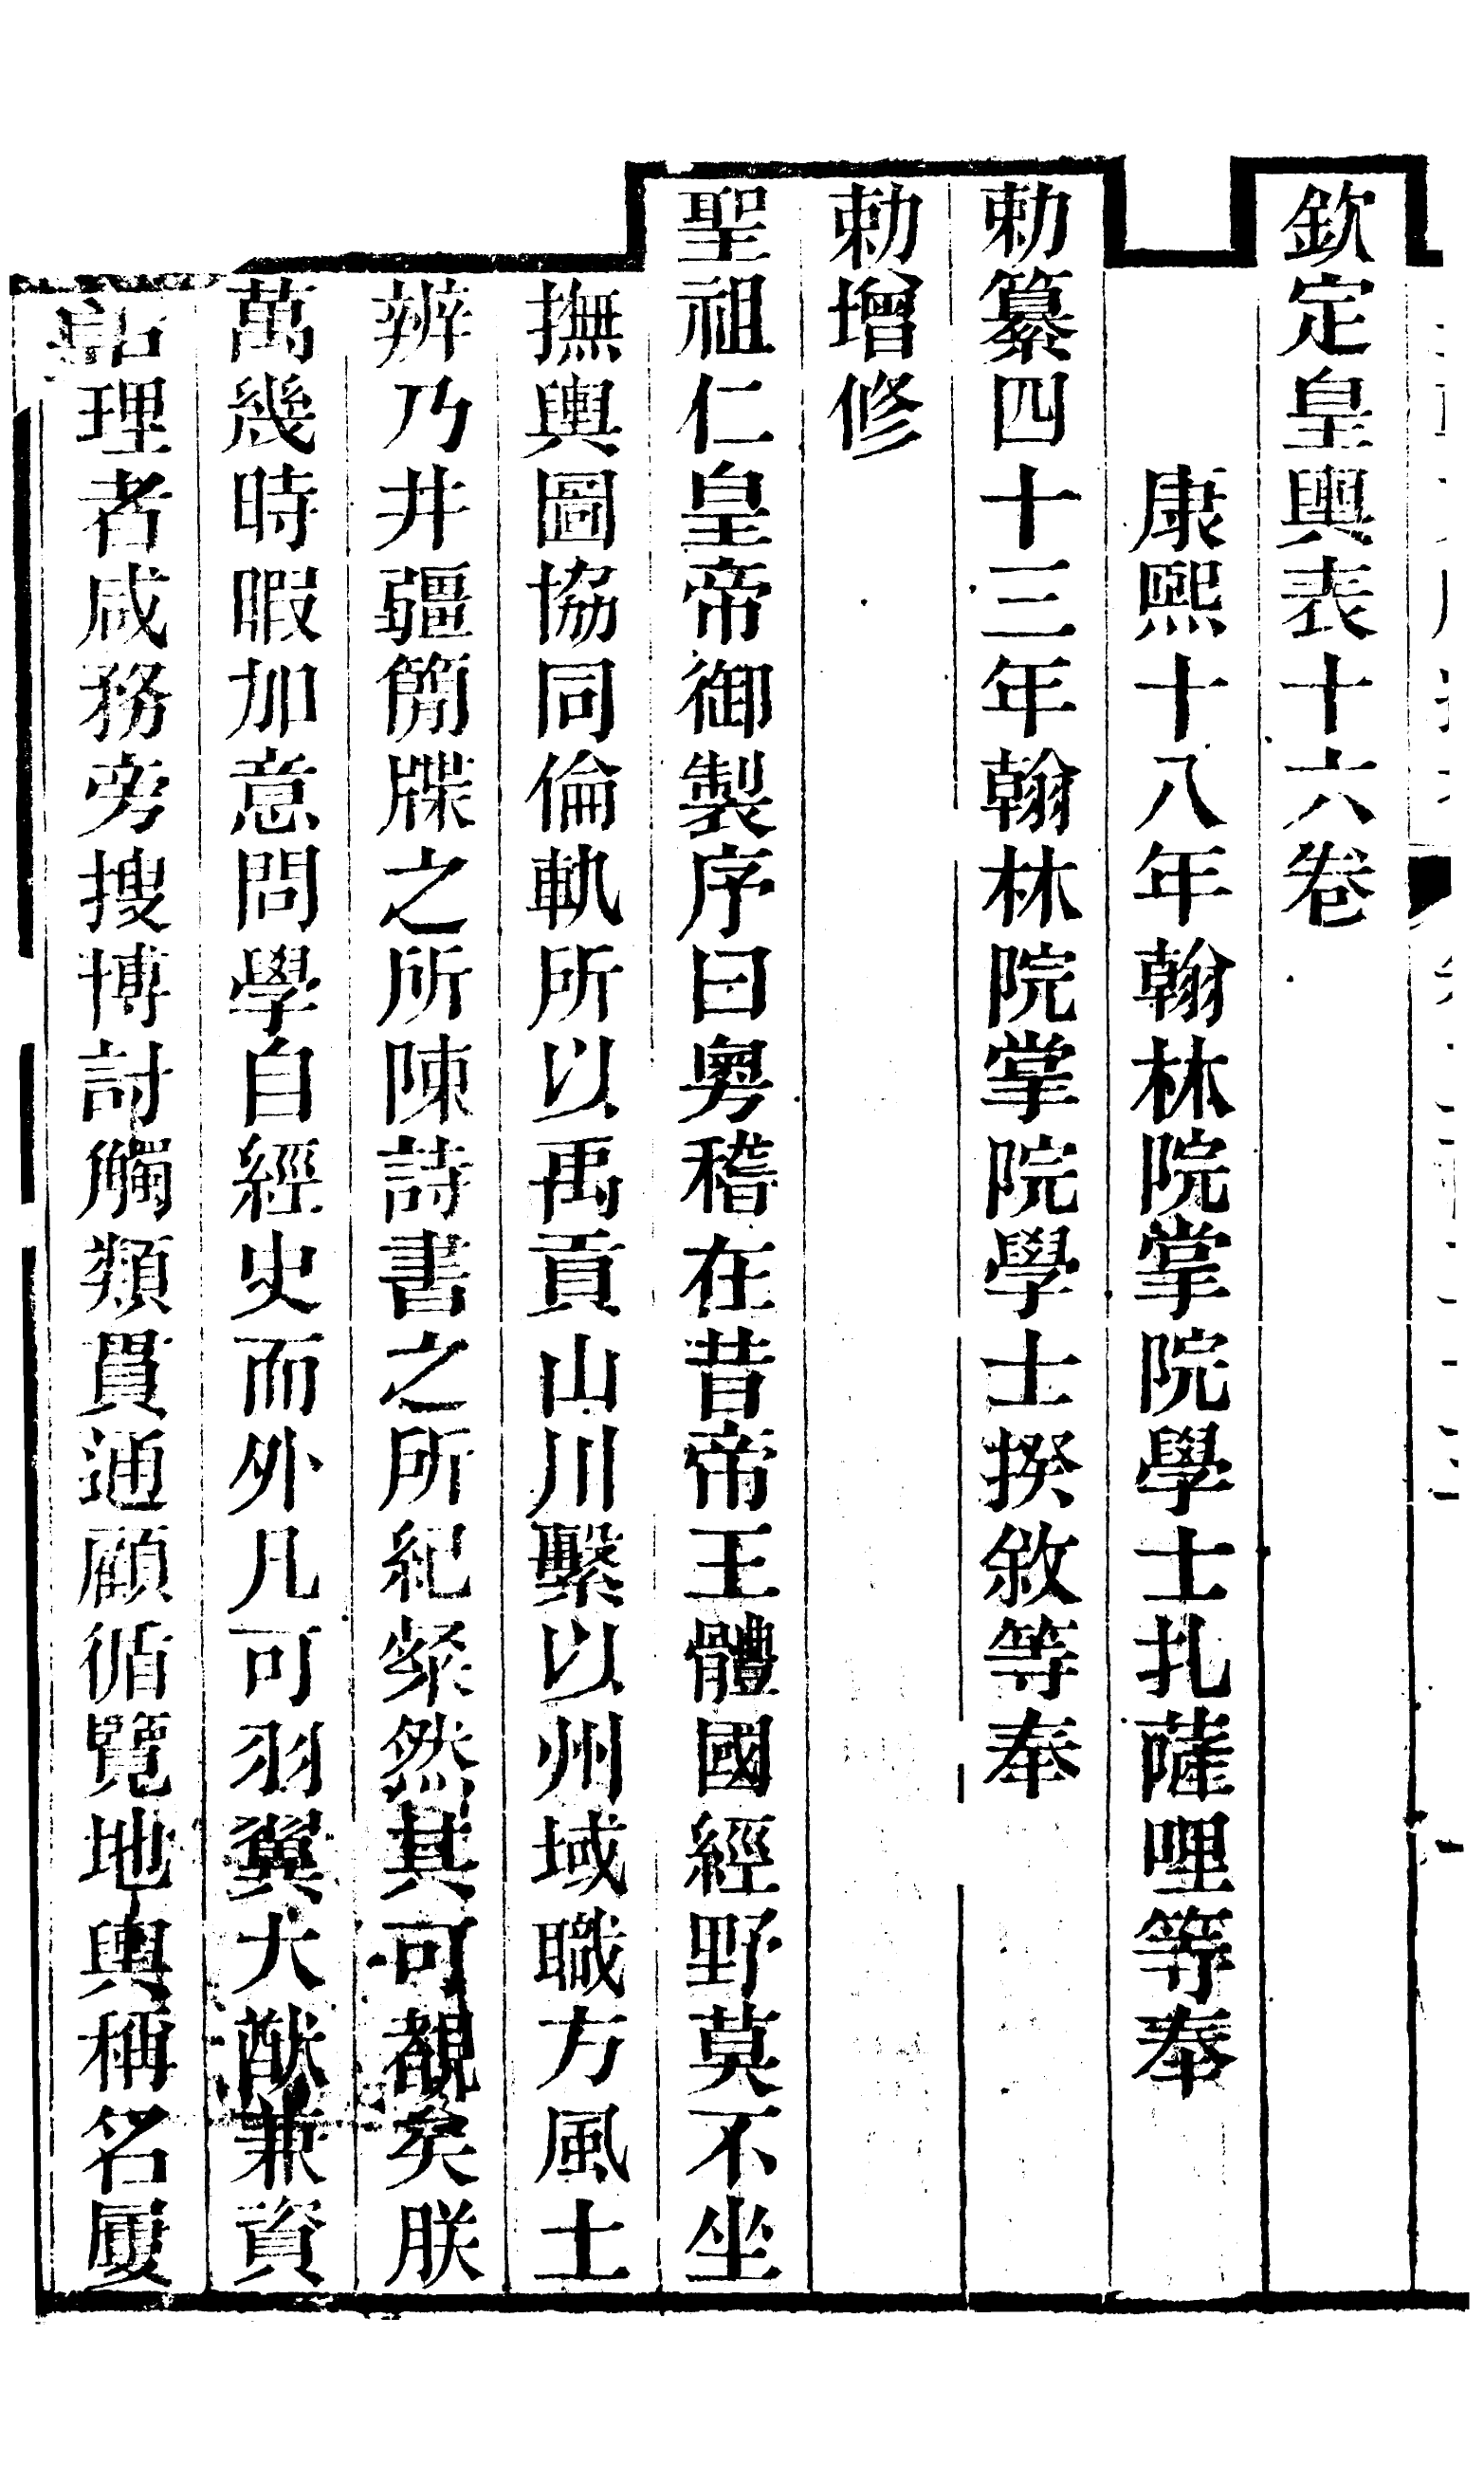 欽定皇輿表十六卷
康熙十八年翰林院掌院學士扎薩哩等奉
勅纂四十三年翰林院掌院學士揆敘等奉
勅增修
聖祖仁皇帝御製序曰粵稽在昔帝王體國經野莫不坐
撫輿圖協同倫軌所以禹貢山川繫以州域職方風土
辨乃井疆簡牒之所陳詩書之所紀粲然其可覩矣朕
萬幾時暇加意問學自經史而外凡可羽翼大猷兼資
理者咸務旁搜博討觸類貫通顧循覽地輿稱名屢